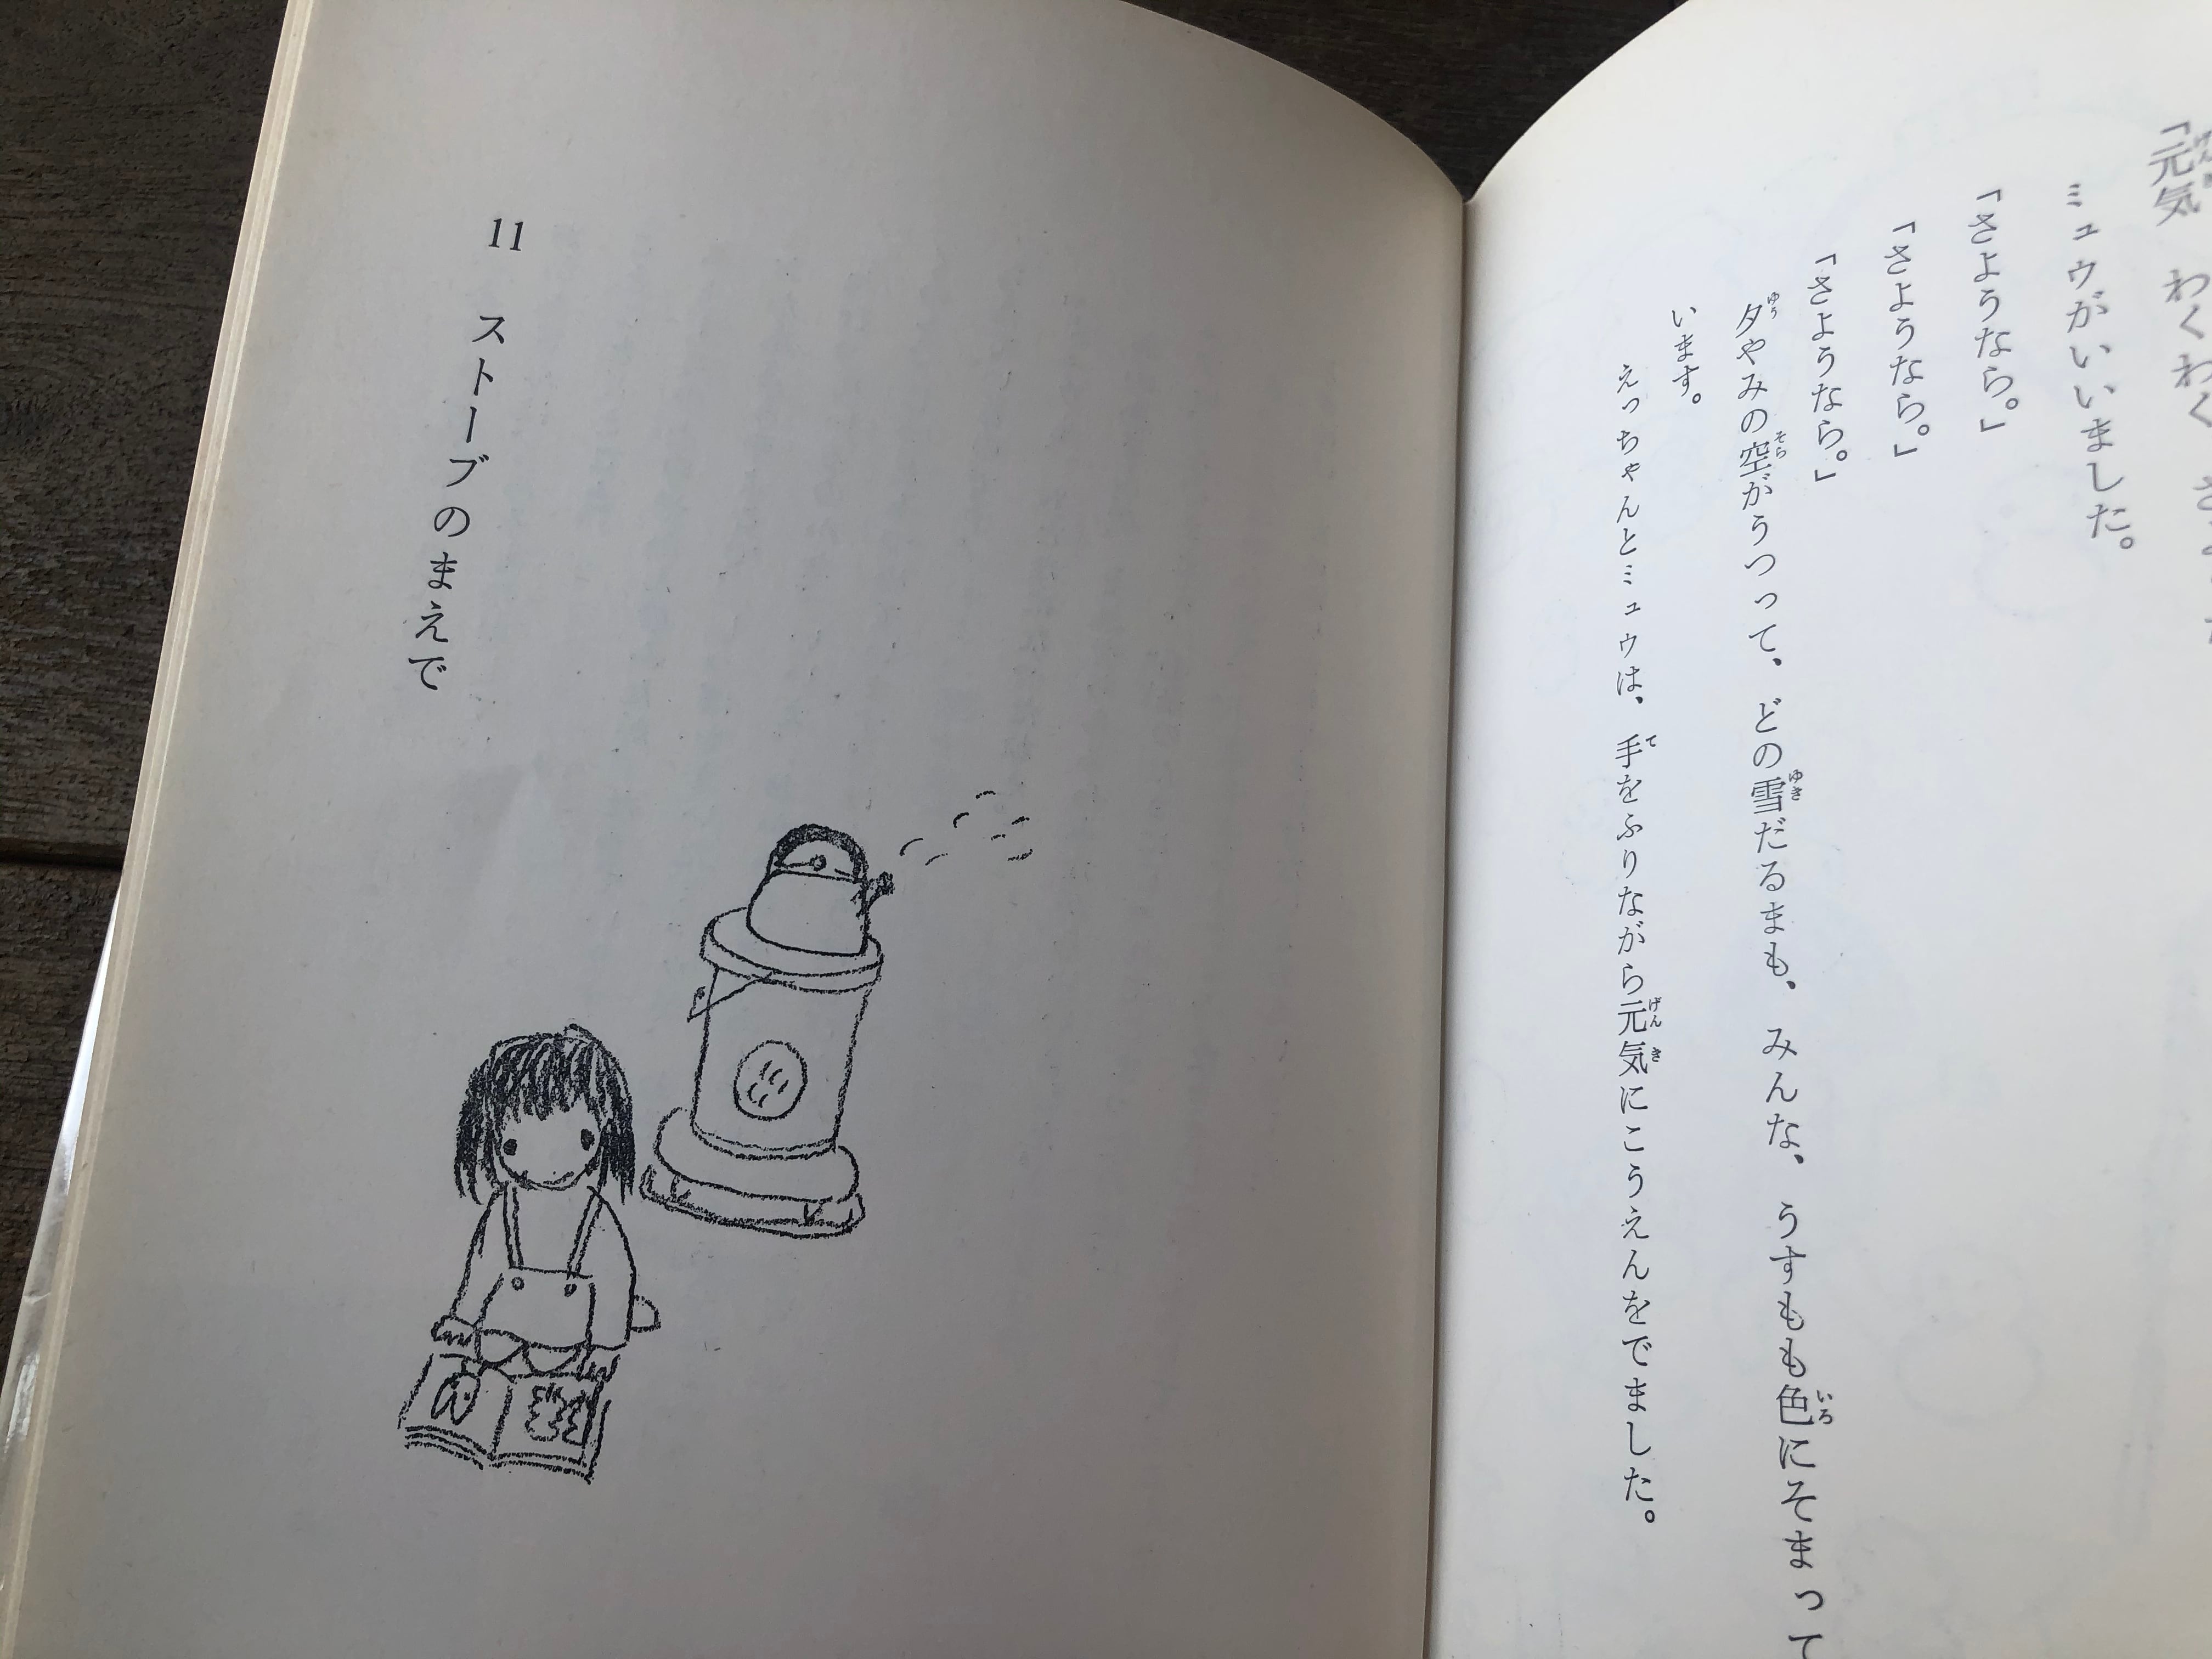 「元気 わくわく
ミュウがいいました。
「さようなら。」
「さようなら。」
「さようなら。」
夕やみの空がうつって、どの雪だるまも、みんな、うすもも色にそまって
います。
えっちゃんとミュウは、手をふりながら元気にこうえんをでました。
11 ストーブのまえで